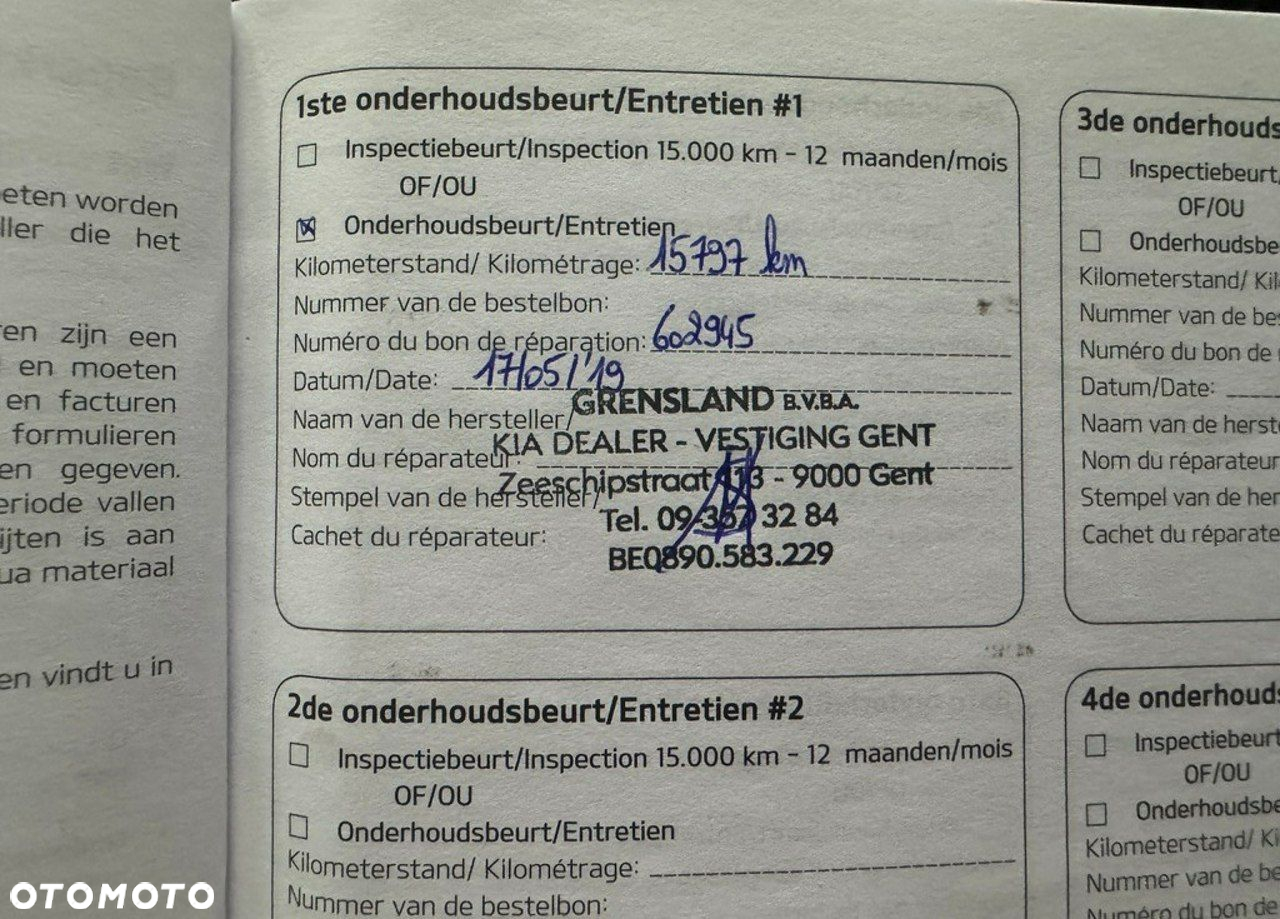 eten worden
ller die het
ren zijn een
en moeten
en facturen
formulieren
en gegeven.
eriode vallen
ijten is aan
ua materiaal
en vindt u in
1ste onderhoudsbeurt/Entretien #1
Inspectiebeurt/Inspection 15.000 km - 12 maanden/mois
OF/OU
Onderhoudsbeurt/Entretien
Kilometerstand/ Kilométrage: 15797 km
Nummer van de bestelbon:
Numéro du bon de réparation: 602945
Datum/Date: 17/05/'19
Naam van de hersteller/
Nom du réparateur:
Stempel van de hersteller/
Cachet du réparateur:
GRENSLAND B.V.B.A.
KIA DEALER - VESTIGING GENT
Zeeschipstraat 113 - 9000 Gent
Tel. 09/367 32 84
BE0890.583.229
2de onderhoudsbeurt/Entretien #2
Inspectiebeurt/Inspection 15.000 km - 12 maanden/mois
OF/OU
Onderhoudsbeurt/Entretien
Kilometerstand/ Kilométrage:
Nummer van de bestelbon:
3de onderhouds
Inspectiebeurt/
OF/OU
Onderhoudsbe
Kilometerstand/ Kil
Nummer van de bes
Numéro du bon de
Datum/Date:
Naam van de herst
Nom du réparateur
Stempel van de her
Cachet du réparate
4de onderhouds
Inspectiebeurt
OF/OU
Onderhoudsbe
Kilometerstand/ Ki
Nummer van de be
Numéro du bon de
OTOMOTO